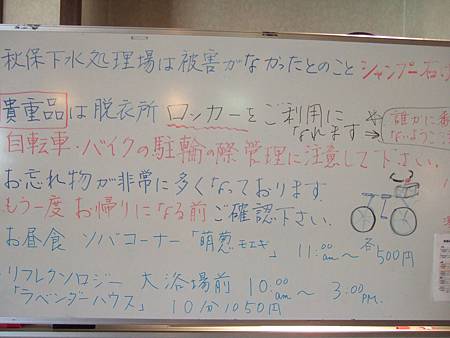 秋保下水処理場は被害がなかったとのこと シャンプー石
貴重品は脱衣所 ロッカーをご利用に
なれます
誰かに
ないよう
自転車・バイクの駐輪の際 管理に注意して下さい。
お忘れ物が非常に多くなっております.
もう一度 お帰りになる前 ご確認下さい.
お昼食 ソバコーナー「萌葱モエギ」 11:00am〜 各500円
リフレクソロジー 大浴場前 10:00am 〜 3:00PM.
「ラベンダーハウス」 10分1050円